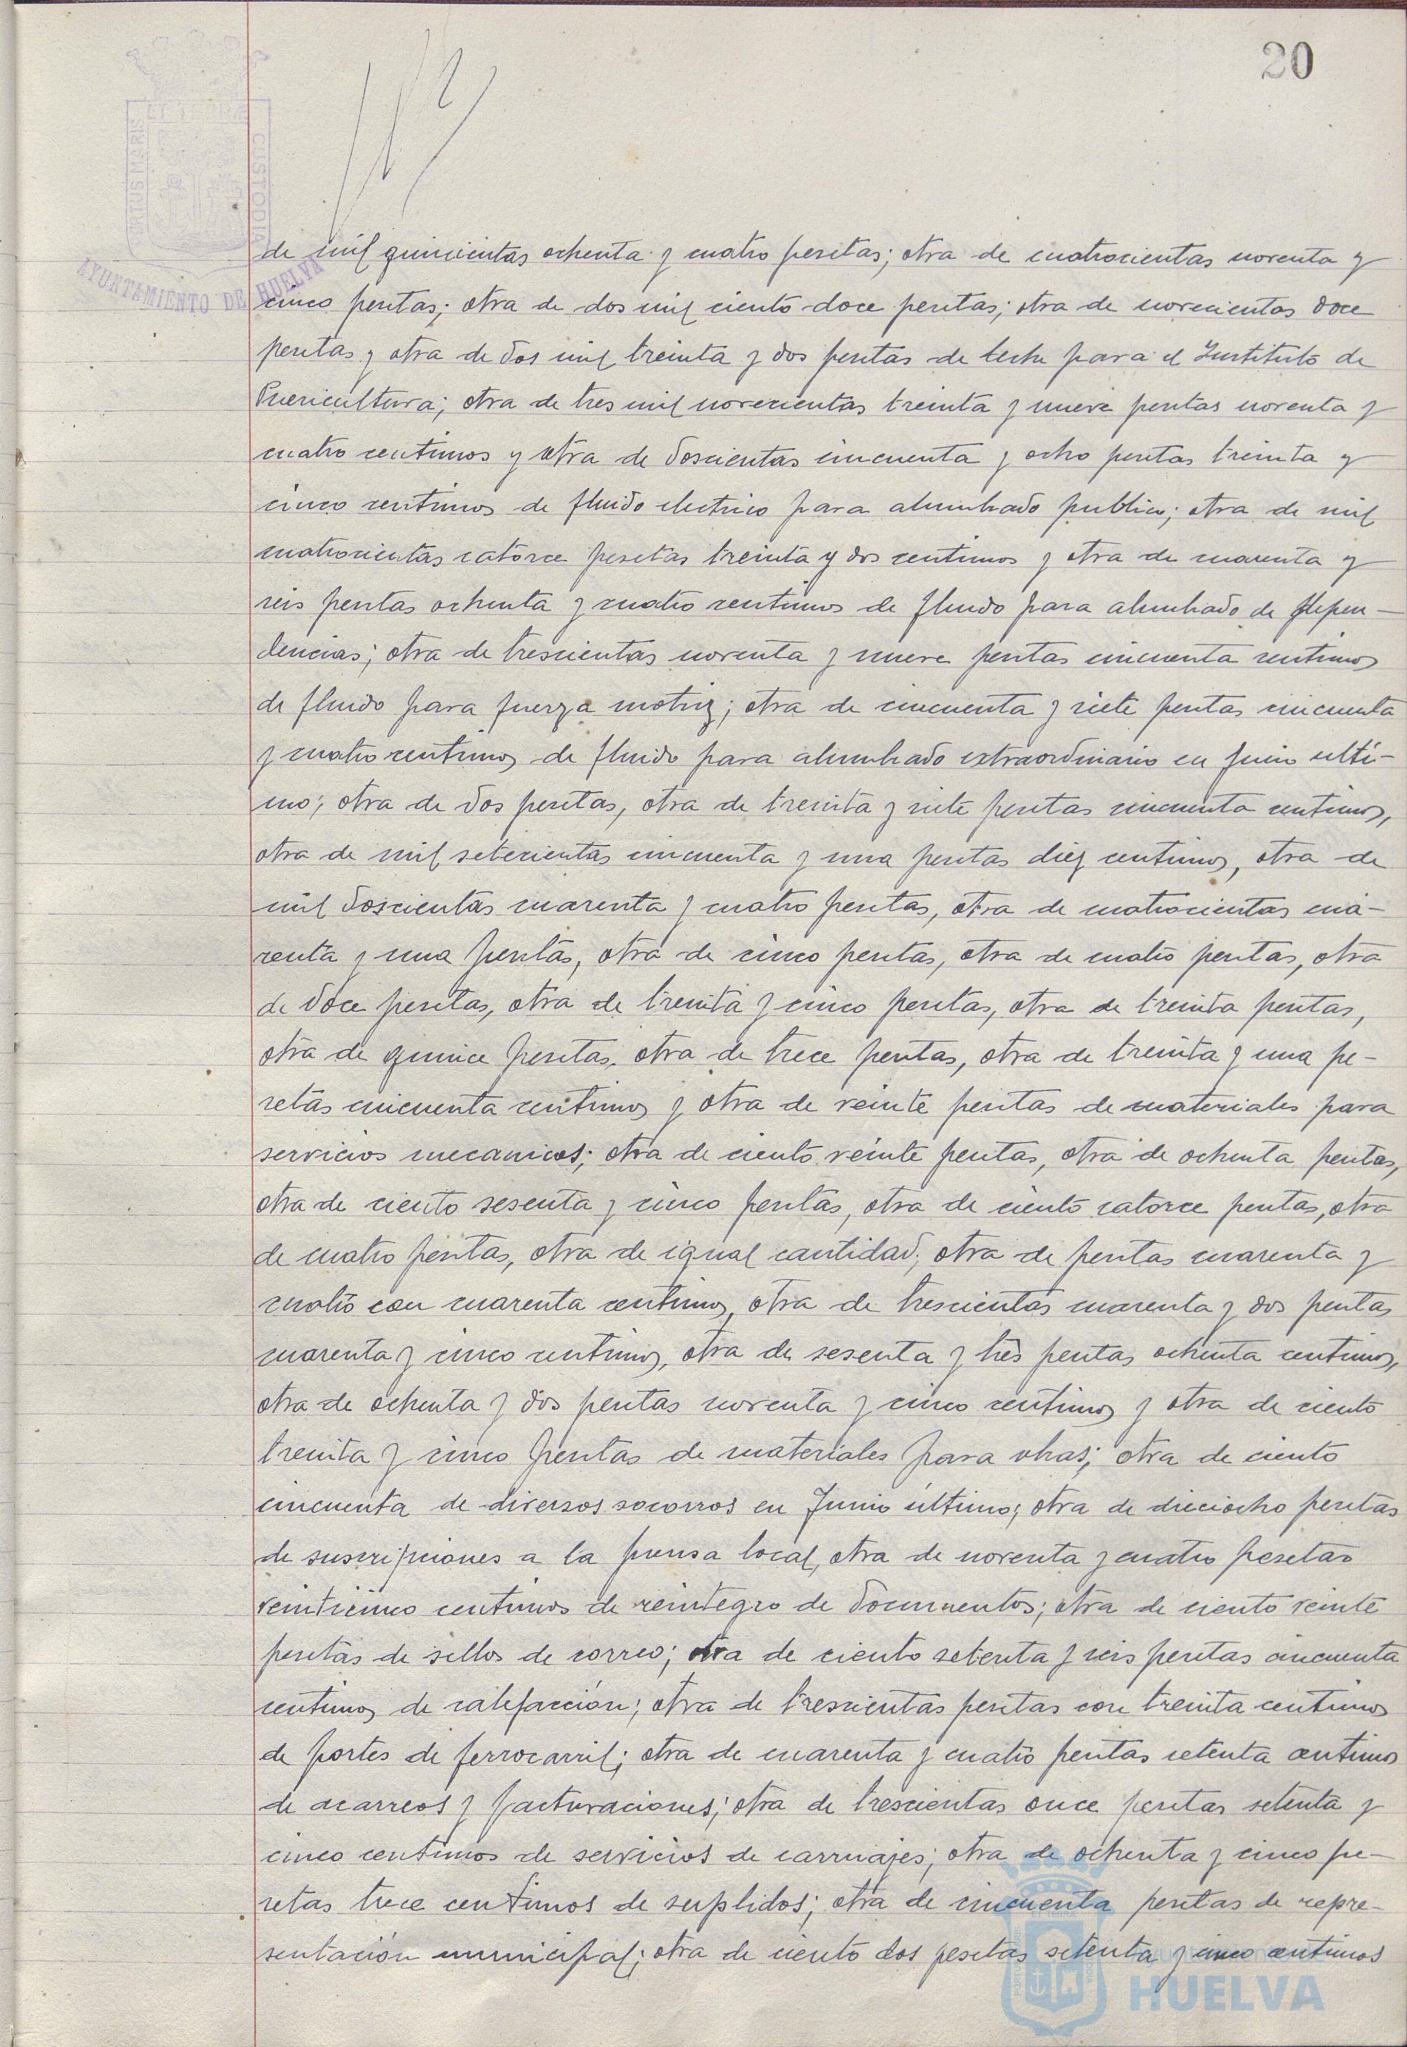 20
PORTUS MARIS ET TERRAE CUSTODIA
AYUNTAMIENTO DE HUELVA
de mil quinientas ochenta y cuatro pesetas; otra de cuatrocientas noventa y
cinco pesetas; otra de dos mil ciento doce pesetas; otra de novecientas doce
pesetas y otra de dos mil treinta y dos pesetas de leche para el Instituto de
Puericultura; otra de tres mil novecientas treinta y nueve pesetas noventa y
cuatro centimos y otra de doscientas cincuenta y ocho pesetas treinta y
cinco centimos de fluido electrico para alumbrado publico; otra de mil
cuatrocientas catorce pesetas treinta y dos centimos y otra de cuarenta y
seis pesetas ochenta y cuatro centimos de fluido para alumbrado de depen-
dencias; otra de trescientas noventa y nueve pesetas cincuenta centimos
de fluido para fuerza motriz; otra de cincuenta y siete pesetas cincuenta
y cuatro centimos de fluido para alumbrado extraordinario en Junio ulti-
mo; otra de dos pesetas, otra de treinta y siete pesetas cincuenta centimos,
otra de mil setecientas cincuenta y una pesetas diez centimos, otra de
mil doscientas cuarenta y cuatro pesetas, otra de cuatrocientas cua-
renta y una pesetas, otra de cinco pesetas, otra de cuatro pesetas, otra
de doce pesetas, otra de treinta y cinco pesetas, otra de treinta pesetas,
otra de quince pesetas, otra de trece pesetas, otra de treinta y una pe-
setas cincuenta centimos y otra de veinte pesetas de materiales para
servicios mecanicos; otra de ciento veinte pesetas, otra de ochenta pesetas,
otra de ciento sesenta y cinco pesetas, otra de ciento catorce pesetas, otra
de cuatro pesetas, otra de igual cantidad; otra de pesetas cuarenta y
cuatro con cuarenta centimos, otra de trescientas cuarenta y dos pesetas
cuarenta y cinco centimos, otra de sesenta y tres pesetas ochenta centimos,
otra de ochenta y dos pesetas noventa y cinco centimos y otra de ciento
treinta y cinco pesetas de materiales para obras; otra de ciento
cincuenta de diversos socorros en Junio último; otra de dieciocho pesetas
de suscripciones a la prensa local, otra de noventa y cuatro pesetas
veinticinco centimos de reintegro de documentos; otra de ciento veinte
pesetas de sellos de correo; otra de ciento setenta y seis pesetas cincuenta
centimos de calefacción; otra de trescientas pesetas con treinta centimos
de portes de ferrocarril; otra de cuarenta y cuatro pesetas setenta centimos
de acarreos y facturaciones; otra de trescientas once pesetas setenta y
cinco centimos de servicios de carruajes; otra de ochenta y cinco pe-
setas trece centimos de suplidos; otra de cincuenta pesetas de repre-
sentación municipal; otra de ciento dos pesetas setenta y cinco centimos
HUELVA